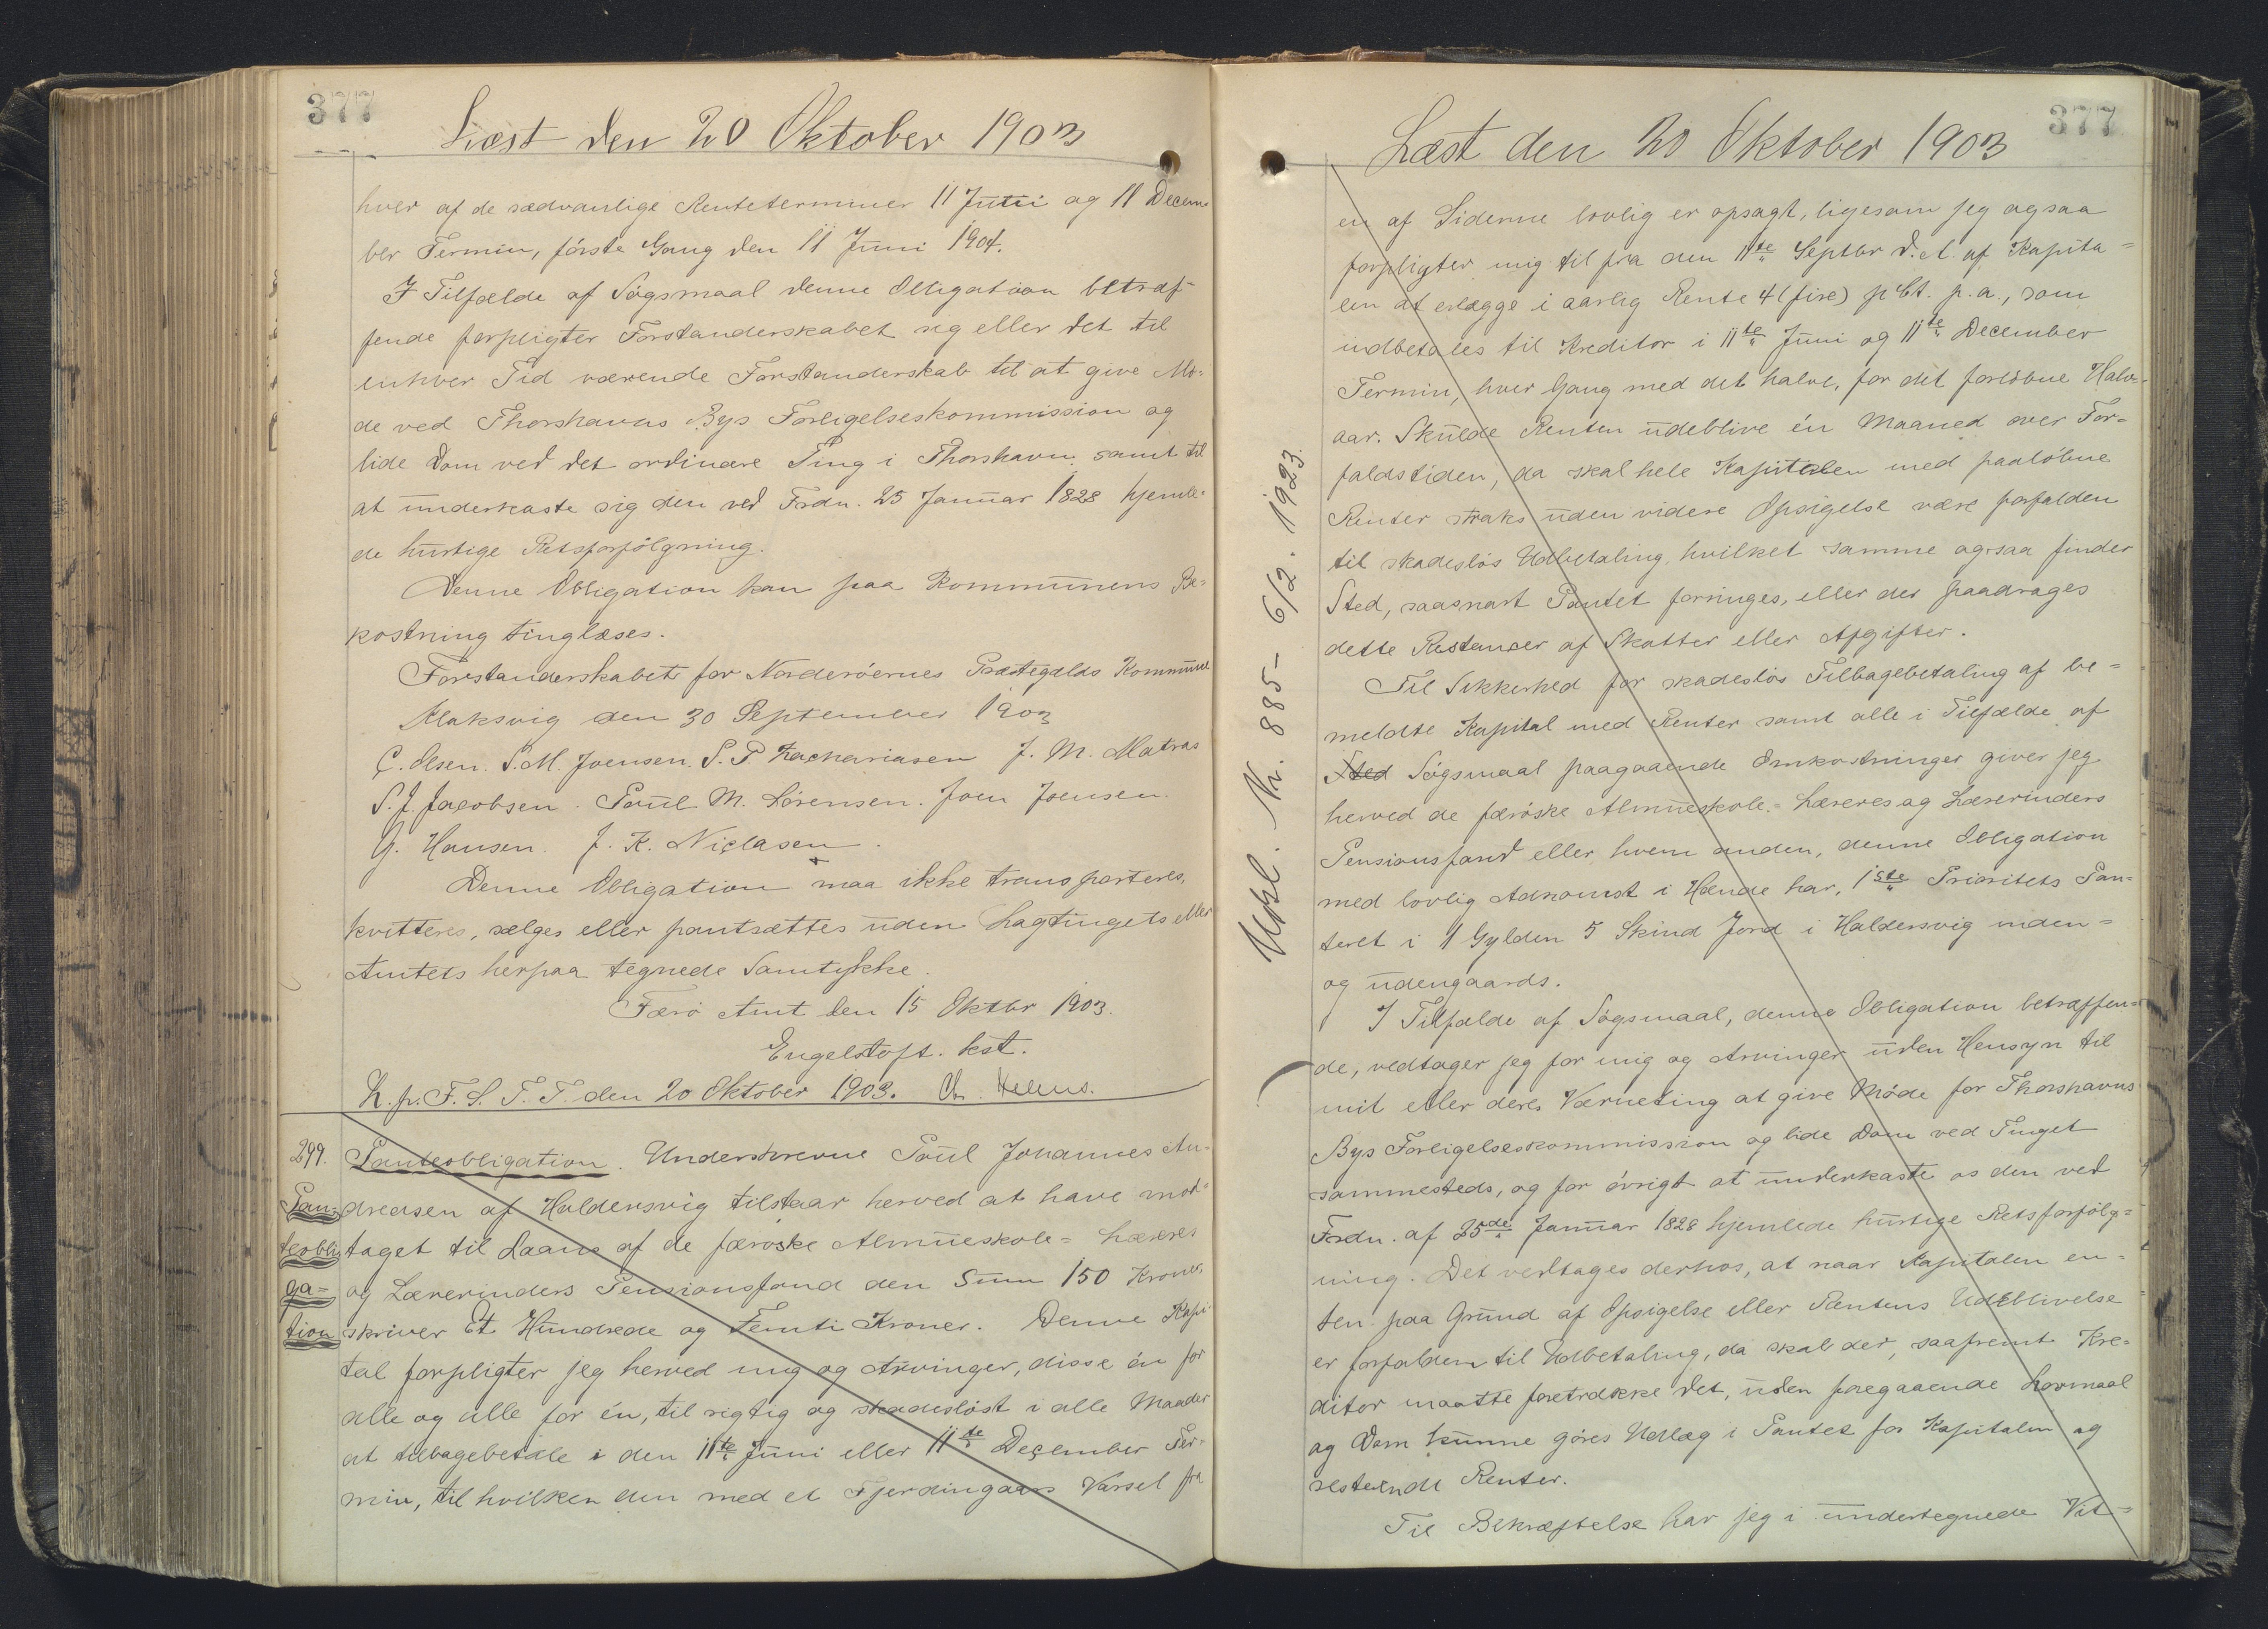 377
Læst den 20 Oktober 1903
hver af de sædvanlige Renteterminer 11 Juni og 11 Decem
ber Termin, første Gang den 11 Juni 1904.
I Tilfælde af Søgsmaal denne Obligation betræf-
fende forpligter Forstanderskabet sig eller det til
enhver Tid værende Forstanderskab til at give Mø-
de ved Thorshavns Bys Forligelseskommission og
lide Dom ved det ordinære Ting i Thorshavn samt til
at underkaste sig den ved Frdn. 25 Januar 1828 hjemle-
de hurtige Retsforfølgning.
Denne Obligation kan paa Kommunens Be-
kostning tinglæses.
Forstanderskabet for Norderøernes Præstegælds Kommune
Klaksvig den 30 September 1903
C. Olsen. S. M. Joensen. S. P. Zachariasen J. M. Matras
S. J. Jacobsen. Poul M. Lórensen. Joen Joensen.
G. Hansen. J. K. Niclasen.
Denne Obligation maa ikke transporteres,
kvitteres, sælges eller pantsættes uden Lagtingets eller
Amtets herpaa tegnede Samtykke.
Færø Amt den 15 Oktbr 1903.
Engelstoft. kst.
L. p. F. S. T. T. den 20 Oktober 1903.
299. Panteobligation. Underskrevne Poul Johannes An-
Pan= dreasen af Haldersvig tilstaar herved at have mod-
teobli taget til Laans af de færøske Almueskole= Læreres
ga= og Lærerinders Pensionsfond den Sum 150 Kroner,
tion skriver Et Hundrede og Femti Kroner. Denne Kapi-
tal forpligter jeg herved mig og Arvinger, disse én for
alle og alle for én, til rigtig og skadesløst i alle Maader
at tilbagebetale i den 11te Juni eller 11te December Ter-
min, til hvilken den med et Fjerdingaars Varsel fra
377
Læst den 20 Oktober 1903
en af Siderne lovlig er opsagt, ligesom jeg ogsaa
forpligter mig til fra den 11te Septbr d. A. af Kapita=
len at erlægge i aarlig Rente 4 (fire) pCt. p. a., som
udbetales til Kreditor i 11te Juni og 11te December
Termin, hver Gang med det halve, for det forløbne Halv-
aar. Skulde Renten udeblive én Maaned over For-
faldstiden, da skal hele Kapitalen med paaløbne
Renter straks uden videre Opsigelse være forfalden
til skadesløs Udbetaling, hvilket samme ogsaa finder
Sted, saasnart Pantet forringes, eller der paadrages
dette Restancer af Skatter eller Afgifter.
Til Sikkerhed for skadesløs Tilbagebetaling af be=
meldte Kapital med Renter samt alle i Tilfælde af
Sted Søgsmaal paagaaende Omkostninger giver jeg
herved de færøske Almueskole= Læreres og Lærerinders
Pensionsfond eller hvem anden, denne Obligation
med lovlig Adkomst i Hænde har, 1ste Prioritets Pan-
teret i 1 Gylden 5 Skind Jord i Haldersvig inden=
og udengaards.
I Tilfælde af Søgsmaal, denne Obligation betræffen=
de, vedtager jeg for mig og Arvinger uden Hensyn til
mit eller deres Værneting at give Møde for Thorshavns
Bys Forligelseskommission og lide Dom ved Tinget
sammesteds, og for øvrigt at underkaste os den ved
Frdn. af 25de Januar 1828 hjemlede hurtige Retsforfølg=
ning. Det vedtages derhos, at naar Kapitalen en=
ten paa Grund af Opsigelse eller Rentens Udeblivelse
er forfalden til Udbetaling, da skal der, saafremt Kre-
ditor maatte foretrække det, uden foregaaende Lovmaal
og Dom kunne gøres Udlæg i Pantet for Kapitalen og
resterende Renter.
Til Bekræftelse har jeg i undertegnede Vit=
Udsl. Nr. 885 - 6/2. 1923.